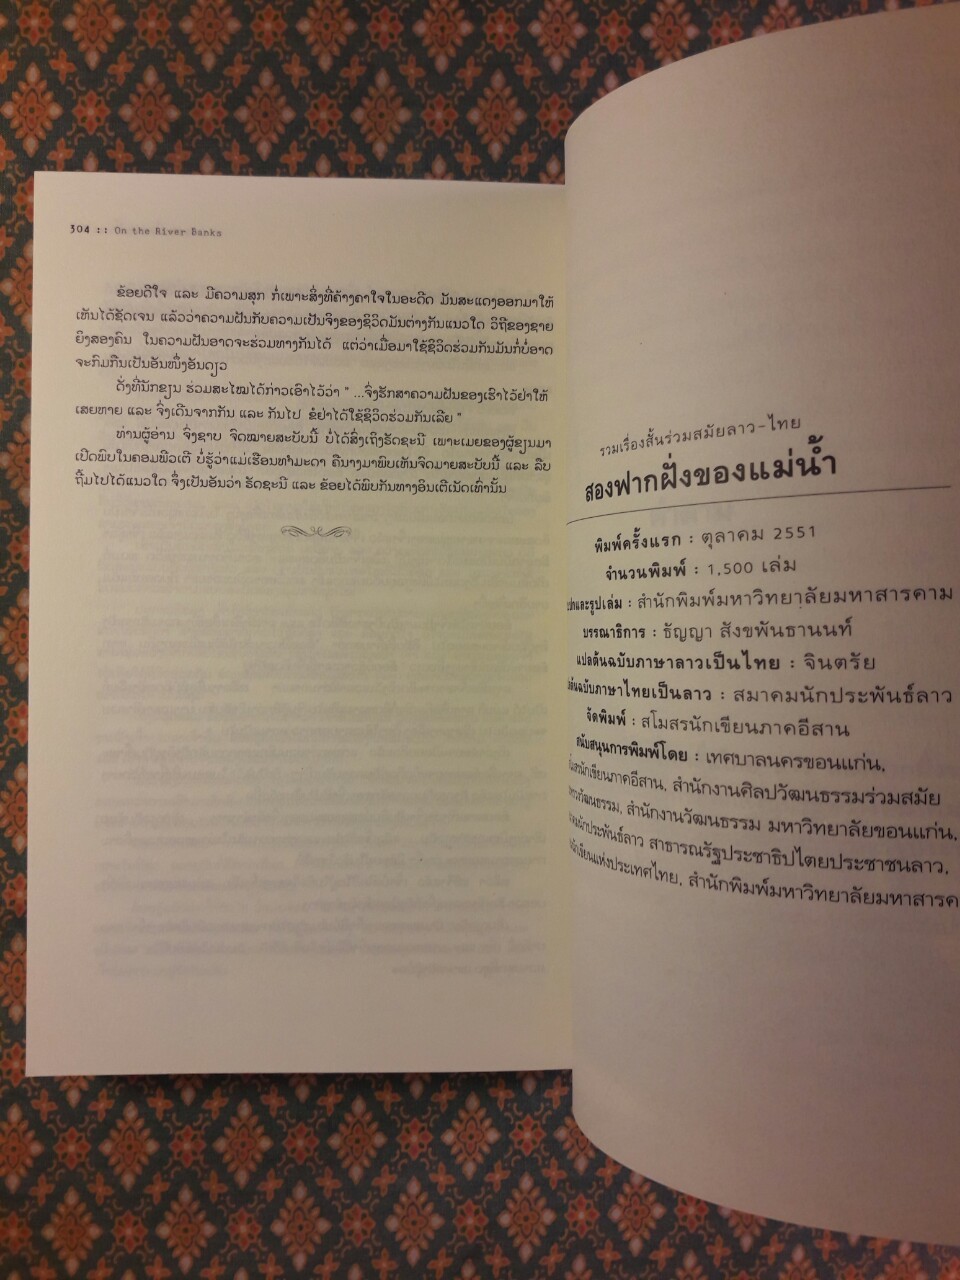 304 :: On the River Banks
ຂ້ອຍດີໃຈ ແລະ ມີຄວາມສຸກ ກໍ່ເພາະສິ່ງທີ່ຄ້າງຄາໃຈໃນອະດີດ ມັນສະແດງອອກມາໃຫ້
ເຫັນໄດ້ຊັດເຈນ ແລ້ວວ່າຄວາມຝັນກັບຄວາມເປັນຈິງຂອງຊີວິດມັນຕ່າງກັນແນວໃດ ວິຖີຂອງຊາຍ
ຍິງສອງຄົນ ໃນຄວາມຝັນອາດຈະຮ່ວມທາງກັນໄດ້ ແຕ່ວ່າເມື່ອມາໃຊ້ຊີວິດຮ່ວມກັນມັນກໍ່ບໍ່ອາດ
ຈະກົມກືນເປັນອັນໜຶ່ງອັນດຽວ
ດັ່ງທີ່ນັກຂຽນ ຮ່ວມສະໄໝໄດ້ກ່າວເອົາໄວ້ວ່າ " ...ຈຶ່ງຮັກສາຄວາມຝັນຂອງເຮົາໄວ້ຢ່າໃຫ້
ເສຍຫາຍ ແລະ ຈຶ່ງເດີນຈາກກັນ ແລະ ກັນໄປ ຂໍຢ່າໄດ້ໃຊ້ຊີວິດຮ່ວມກັນເລີຍ "
ທ່ານຜູ້ອ່ານ ຈຶ່ງຊາບ ຈົດໝາຍສະບັບນີ້ ບໍ່ໄດ້ສົ່ງເຖິງຣັດຊະນີ ເພາະເມຍຂອງຜູ້ຂຽນມາ
ເປີດພົບໃນຄອມພິວເຕີ ບໍ່ຮູ້ວ່າແມ່ເຮືອນທຳມະດາ ຄືນາງມາພົບເຫັນຈົດມາຍສະບັບນີ້ ແລະ ລຶບ
ຖິ້ມໄປໄດ້ແນວໃດ ຈຶ່ງເປັນອັນວ່າ ຣັດຊະນີ ແລະ ຂ້ອຍໄດ້ພົບກັນທາງອິນເຕີເນັດເທົ່ານັ້ນ
รวมเรื่องสั้นร่วมสมัยลาว-ไทย
สองฟากฝั่งของแม่น้ำ
พิมพ์ครั้งแรก : ตุลาคม 2551
จำนวนพิมพ์ : 1,500 เล่ม
และรูปเล่ม : สำนักพิมพ์มหาวิทยาลัยมหาสารคาม
บรรณาธิการ : ธัญญา สังขพันธานนท์
แปลต้นฉบับภาษาลาวเป็นไทย : จินตรัย
ต้นฉบับภาษาไทยเป็นลาว : สมาคมนักประพันธ์ลาว
จัดพิมพ์ : สโมสรนักเขียนภาคอีสาน
สนับสนุนการพิมพ์โดย : เทศบาลนครขอนแก่น,
สรนักเขียนภาคอีสาน, สำนักงานศิลปวัฒนธรรมร่วมสมัย
วัฒนธรรม, สำนักงานวัฒนธรรม มหาวิทยาลัยขอนแก่น,
นักประพันธ์ลาว สาธารณรัฐประชาธิปไตยประชาชนลาว,
แห่งประเทศไทย, สำนักพิมพ์มหาวิทยาลัยมหาสารค